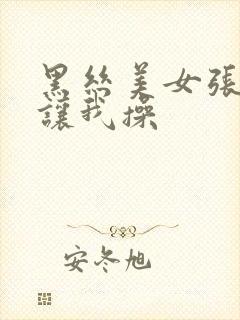 黑丝美女張
讓我操
安冬旭